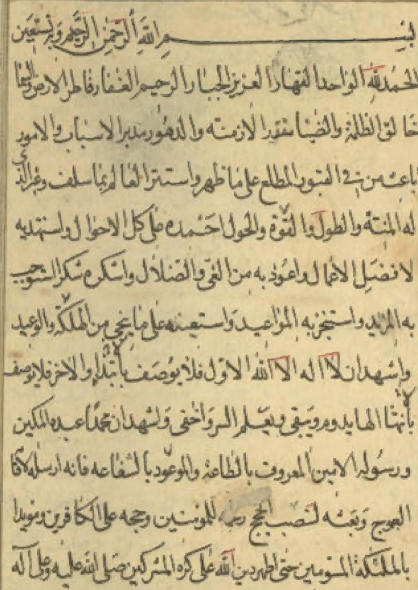 بسم الله الرحمن الرحيم وبه نستعين
الحمد لله الواحد القهار العزيز الجبار الرحيم الغفار فاطر الارض والسما
خالق الظلمة والضيا مقدر الازمنة والدهور مدبر الاسباب والامور
باعث من في القبور المطلع على ما ظهر واستتر العالم بما سلف وغبر الذي
له المنة والطول والقوة والحول احمده على كل الاحوال واستهديه
لافضل الاعمال واعوذ به من الغي والضلال واشكره شكرا استوجب
به المزيد واستنجز به المواعيد واستعينه على ما ينجي من الهلكة والوعيد
واشهد ان لا اله الا الله الاول فلا يوصف بابتداء والاخر فلا يوصف
بانتها الها يدوم ويبقى ويعلم السر واخفى واشهد ان محمدا عبده المكين
ورسوله الامين المعروف بالطاعة والموعود بالشفاعه فانه ارسله لاقامة
العوج وبعثه لنصب الحجج رحمة للمومنين وحجه على الكافرين ومويدا
بالملئكة المسومين حتى اظهر دين الله على كره المشركين صلى الله عليه وعلى اله